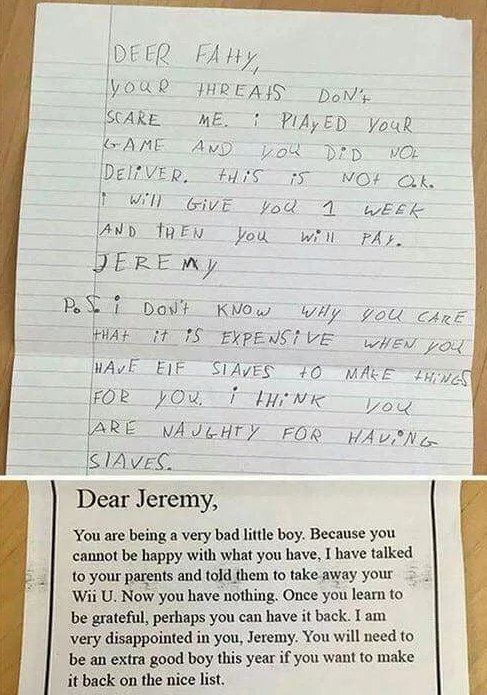 DEER FAtty,
YOUR tHREAtS DON't
SCARE ME. i PlAyED YOUR
GAME AND YOU DiD NOt
DEliVER. tHiS iS NOt O.K.
i Will GiVE YOU 1 WEEK
AND tHEN YOU Will PAY.
JEREMY
P.S. i DON't KNOW WHY YOU CARE
tHAt it iS EXPENSiVE WHEN YOU
HAVE ElF SlAVES tO MAKE tHiNGS
FOR YOU. i tHiNK YOU
ARE NAUGHTY FOR HAViNG
SlAVES.
Dear Jeremy,
You are being a very bad little boy. Because you
cannot be happy with what you have, I have talked
to your parents and told them to take away your
Wii U. Now you have nothing. Once you learn to
be grateful, perhaps you can have it back. I am
very disappointed in you, Jeremy. You will need to
be an extra good boy this year if you want to make
it back on the nice list.